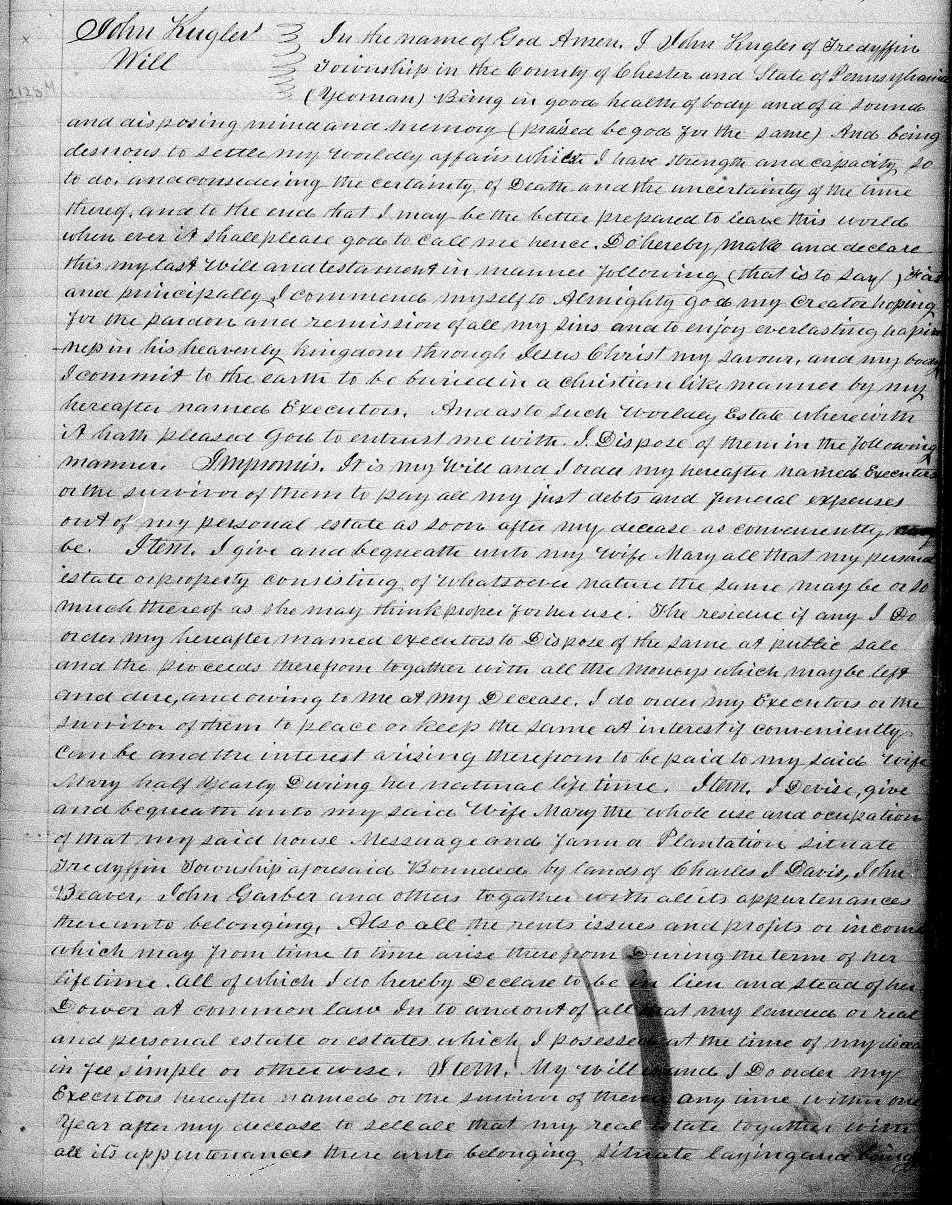 John Kugler's
Will
In the name of God Amen. I John Kugler of Tredyffin
Township in the County of Chester and State of Pennsylvania
(Yeoman) Being in good health of body and of a sound
and disposing mind and memory (praised be god for the same) And being
desirous to settle my worldly affairs which I have strength and capacity so
to do, and considering the certainty of Death and the uncertainty of the time
thereof, and to the end that I may be the better prepared to leave this world
when ever it shall please god to call me hence. Do hereby make and declare
this my last will and testament in manner following (that is to say)
and principally I commend myself to Almighty god my Creator hoping
for the pardon and remission of all my sins and to enjoy everlasting hapi
ness in his heavenly kingdom through Jesus Christ my savour, and my body
I commit to the earth to be buried in a christian like manner by my
hereafter named Executors. And as to such Worldly Estate wherewith
it hath pleased God to entrust me with. I Dispose of them in the following
manner. Impromis. It is my Will and I order my hereafter named Executors
or the survivor of them to pay all my just debts and funeral expenses
out of my personal estate as soon after my decease as conveniently may
be. Item. I give and bequeath unto my wife Mary all that my personal
estate or property consisting of whatsoever nature the same may be or so
much thereof as she may think proper for her use. The residue if any I Do
order my hereafter mamed executors to Dispose of the same at public sale
and the proceeds therefrom together with all the moneys which may be left
and due, and owing to me at my Decease. I do order my Executors or the
survivor of them to peace or keep the same at interest if conveniently
can be and the interest arising therefrom to be paid to my said wife
Mary half Yearly During her natural life time. Item. I Devise, give
and bequeath unto my said Wife Mary the whole use and ocupation
of that my said house Messuage and Farm or Plantation situate
Tredyffin Township aforesaid Bounded by lands of Charles I Davis, John
Beaver, John Garber and others together with all its appurtenances
thereunto belonging, Also all the rents issues and profits or income
which may from time to time arise therefrom During the term of her
lifetime. all of which I do hereby Declare to be in lieu and stead of her
Dower at common law In to and out of all that my landed or real
and personal estate or estates which I posessed at the time of my decea
in fee simple or otherwise. Item. My will and I Do order my
Executors hereafter named or the survivor of them any time within one
Year after my decease to sell all that my real estate together with
all its appurtenances there unto belonging situate laying and being